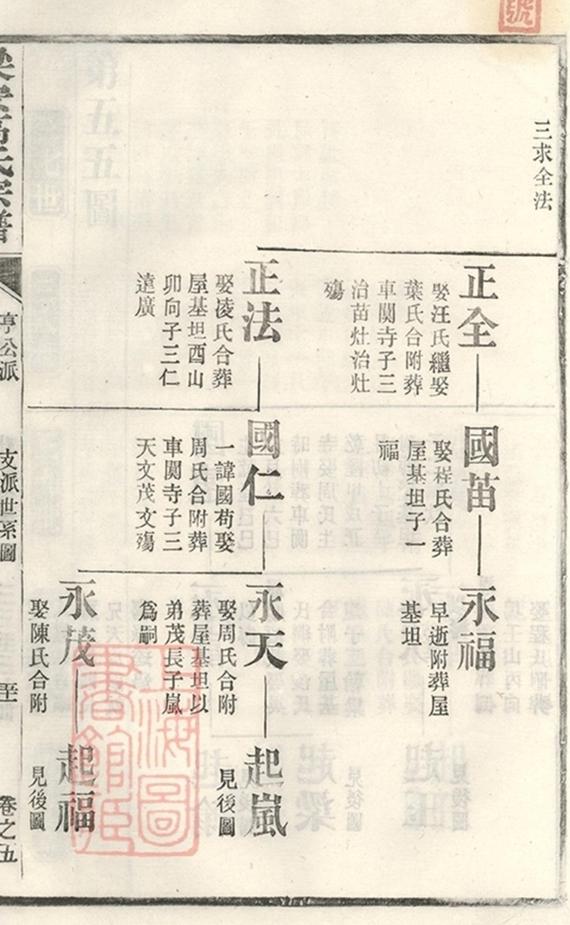 三求全法
正全
娶汪氏繼娶
葉氏合附葬
車闗寺子三
治苗灶治灶
殤
國苗
娶程氏合葬
屋基坦子一
福
永福
早逝附葬屋
基坦
正法
娶凌氏合葬
屋基坦酉山
卯向子三仁
達廣
國仁
一諱國荀娶
周氏合附葬
車闗寺子三
天文茂文殤
永天
娶周氏合附
葬屋基坦以
弟茂長子嵐
爲嗣
起嵐
見後圖
永茂
娶陳氏合附
起福
見後圖
氏宗譜
亨公派
支派世系圖
卷之五
上海圖書館藏